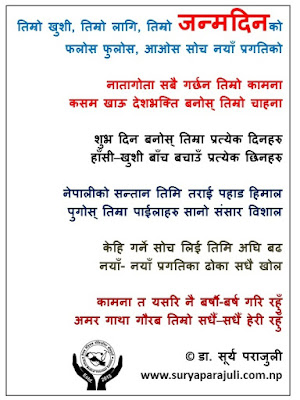 तिम्रो खुशी, तिम्रो लागि, तिम्रो जन्मदिनको
फलोस फुलोस, आओस सोच नयाँ प्रगतिको
नातागोता सबै गर्छन तिम्रो कामना
कसम खाऊ देशभक्ति बनोस् तिम्रो चाहना
शुभ दिन बनोस् तिम्रा प्रत्येक दिनहरु
हाँसी-खुशी बाँच बचाउँ प्रत्येक छिनहरु
नेपालीको सन्तान तिमि तराई पहाड हिमाल
पुगोस् तिम्रा पाईलाहरु सानो संसार विशाल
केहि गर्ने सोच लिई तिमि अघि बढ
नयाँ- नयाँ प्रगतिका ढोका सधै खोल
कामना त यसरि नै बर्षौ-बर्ष गरि रहुँ
अमर गाथा गौरब तिम्रो सधैँ-सधैँ हेरी रहुँ
© डा. सूर्य पराजुली
www.suryaparajuli.com.np